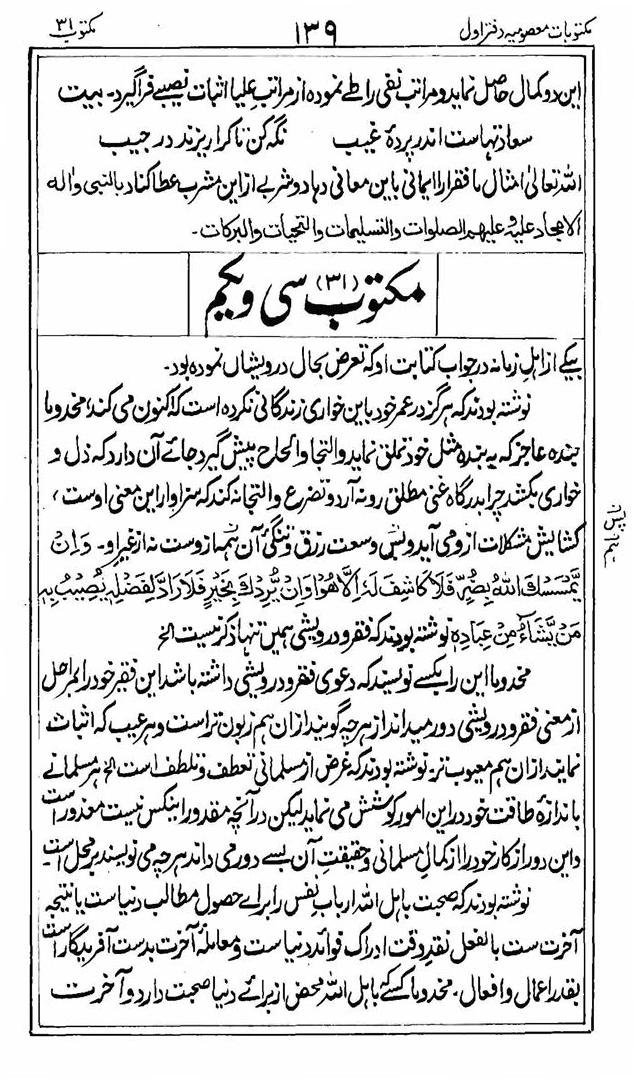 مکتوبات معصومیہ دفتر اول ۱۳۹ مکتوب ۳۱
این دو کمال حاصل نماید و مراتب نفی را طے نمودہ از مراتب علیا اثبات نصیبے فرا گیرد۔ بیت
سعادتہاست اندر پردۂ غیب نگہ کن تا کرا ریزند در جیب
اللہ تعالیٰ امثال ما فقرا را ایمانی باین معانی دہاد و شربے از این مشرب عطا کناد بالنبی واٰلہ
الامجاد علیہ و علیہم الصلوات والتسلیمات والتحیات والبرکات۔
مکتوب (۳۱) سی و یکم
بیکے از اہل زمانہ در جواب کتابت او کہ تعرض بحال درویشان نمودہ بود۔
نوشتہ بودند کہ ہرگز در عمر خود باین خواری زندگانی نکردہ است کہ اکنون می کند، مخدوما
بندہ عاجز کہ بہ بندہ مثل خود تملق نماید و التجا و الحاح پیش گیرد جائے آن دارد کہ ذل و
خواری بکشد چرا بدرگاہ غنی مطلق رو نہ آرد و تضرع و التجا نہ کند کہ سزاوار این معنی اوست،
کشایش مشکلات ازو می آید و بس و وسعت رزق و تنگیٔ آن ہمہ از وست نہ از غیر او۔ وَاِنْ
یَّمْسَسْكَ اللّٰهُ بِضُرٍّ فَلَا کَاشِفَ لَهٗ اِلَّا هُوَ وَاِنْ یُّرِدْكَ بِخَیْرٍ فَلَا رَادَّ لِفَضْلِهٖ یُصِیْبُ بِهٖ
مَنْ یَّشَاءُ مِنْ عِبَادِهٖ نوشتہ بودند کہ فقر و درویشی ہمین تنہا ذکر نیست الخ
مخدوما این را بکسے نویسند کہ دعوی فقر و درویشی داشتہ باشد این فقیر خود را بمراحل
از معنی فقر و درویشی دور میداند از ہرچہ گویند ازان ہم زبون تر است و ہر عیب کہ اثبات
نمایند ازان ہم معیوب تر۔ نوشتہ بودند کہ غرض از مسلمانی تعطف و تلطف است الخ ہر مسلمانے
باندازۂ طاقت خود در این امور کوشش می نماید لیکن در آنچہ مقدور اینکس نیست معذور است
و این دور از کار خود را از کمال مسلمانی و حقیقت آن بسے دور می داند ہرچہ می نویسند بر محل است۔
نوشتہ بودند کہ صحبت باہل اللہ ارباب نفس را برائے حصول مطالب دنیاست یا نتیجہ
آخرت ست بالفعل نقد وقت ادراک فوائد دنیاست و معاملۂ آخرت بدست آفریدگار است
بقدر اعمال و افعال۔ مخدوما کسے کہ باہل اللہ محض از برائے دنیا صحبت دارد و آخرت